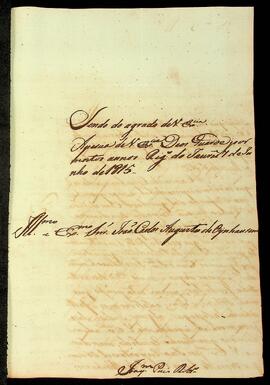 Sendo do agrado de V. Ex.cia
A pessoa de V. Ex.cia Deos Guarde por
muitos annos Reg.o do Taurá 1 de Ju-
nho de 1815.
Ill.mo e Ex.mo Snr. João Carlos Augusto d'Oynhausen
Joaq.m